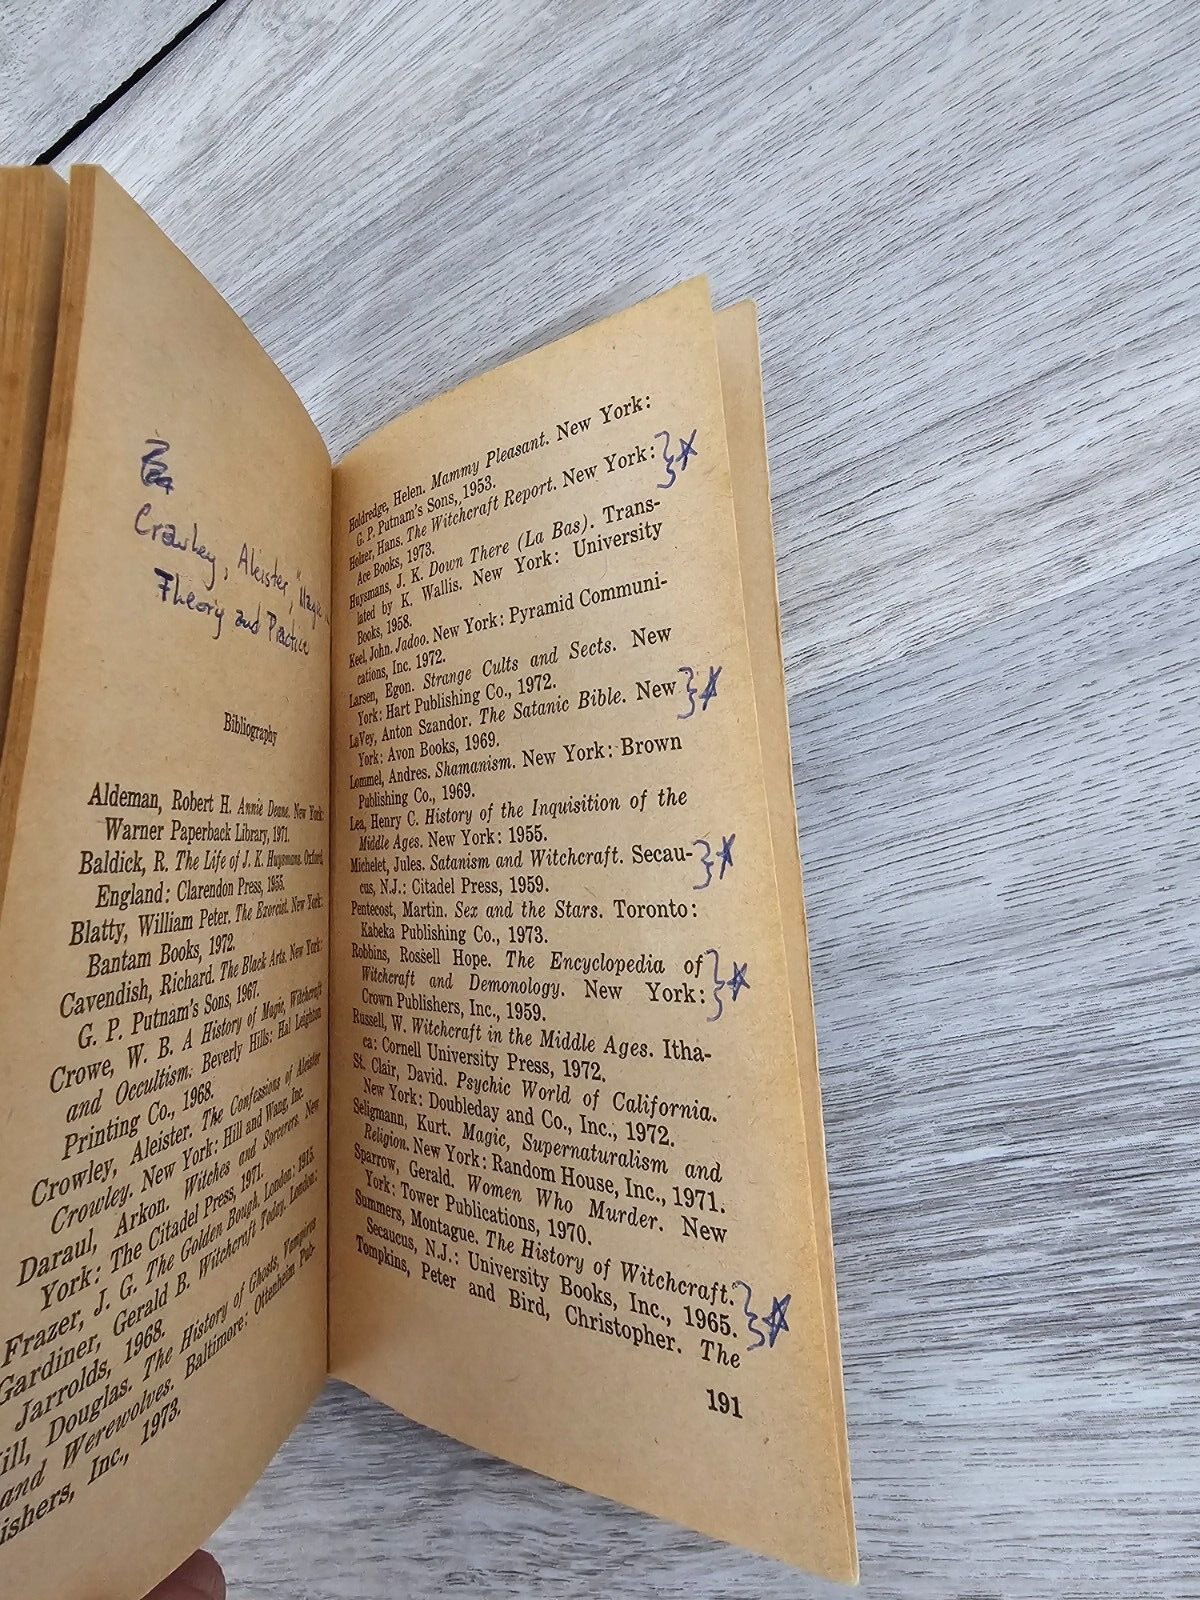 Crowley, Aleister, "Magic
Theory and Practice
Bibliography
Aldeman, Robert H. Annie Deane. New York:
Warner Paperback Library, 1971.
Baldick, R. The Life of J. K. Huysmans. Oxford,
England: Clarendon Press, 1955.
Blatty, William Peter. The Exorcist. New York:
Bantam Books, 1972.
Cavendish, Richard. The Black Arts. New York:
G. P. Putnam's Sons, 1967.
Crowe, W. B. A History of Magic, Witchcraft
and Occultism. Beverly Hills: Hal Leighton
Printing Co., 1968.
Crowley, Aleister. The Confessions of Aleister
Crowley. New York: Hill and Wang, Inc.
Daraul, Arkon. Witches and Sorcerers. New
York: The Citadel Press, 1971.
Frazer, J. G. The Golden Bough. London: 1915.
Gardiner, Gerald B. Witchcraft Today. London:
Jarrolds, 1968.
ill, Douglas. The History of Ghosts, Vampires
and Werewolves. Baltimore: Ottenheim Pub-
ishers, Inc., 1973.
Holdredge, Helen. Mammy Pleasant. New York:
G. P. Putnam's Sons, 1953.
Holzer, Hans. The Witchcraft Report. New York:
Ace Books, 1973.
Huysmans, J. K. Down There (La Bas). Trans-
lated by K. Wallis. New York: University
Books, 1958.
Keel, John. Jadoo. New York: Pyramid Communi-
cations, Inc. 1972.
Larsen, Egon. Strange Cults and Sects. New
York: Hart Publishing Co., 1972.
LaVey, Anton Szandor. The Satanic Bible. New
York: Avon Books, 1969.
Lommel, Andres. Shamanism. New York: Brown
Publishing Co., 1969.
Lea, Henry C. History of the Inquisition of the
Middle Ages. New York: 1955.
Michelet, Jules. Satanism and Witchcraft. Secau-
cus, N.J.: Citadel Press, 1959.
Pentecost, Martin. Sex and the Stars. Toronto:
Kabeka Publishing Co., 1973.
Robbins, Rossell Hope. The Encyclopedia of
Witchcraft and Demonology. New York:
Crown Publishers, Inc., 1959.
Russell, W. Witchcraft in the Middle Ages. Itha-
ca: Cornell University Press, 1972.
St. Clair, David. Psychic World of California.
New York: Doubleday and Co., Inc., 1972.
Seligmann, Kurt. Magic, Supernaturalism and
Religion. New York: Random House, Inc., 1971.
Sparrow, Gerald. Women Who Murder. New
York: Tower Publications, 1970.
Summers, Montague. The History of Witchcraft.
Secaucus, N.J.: University Books, Inc., 1965.
Tompkins, Peter and Bird, Christopher. The
191